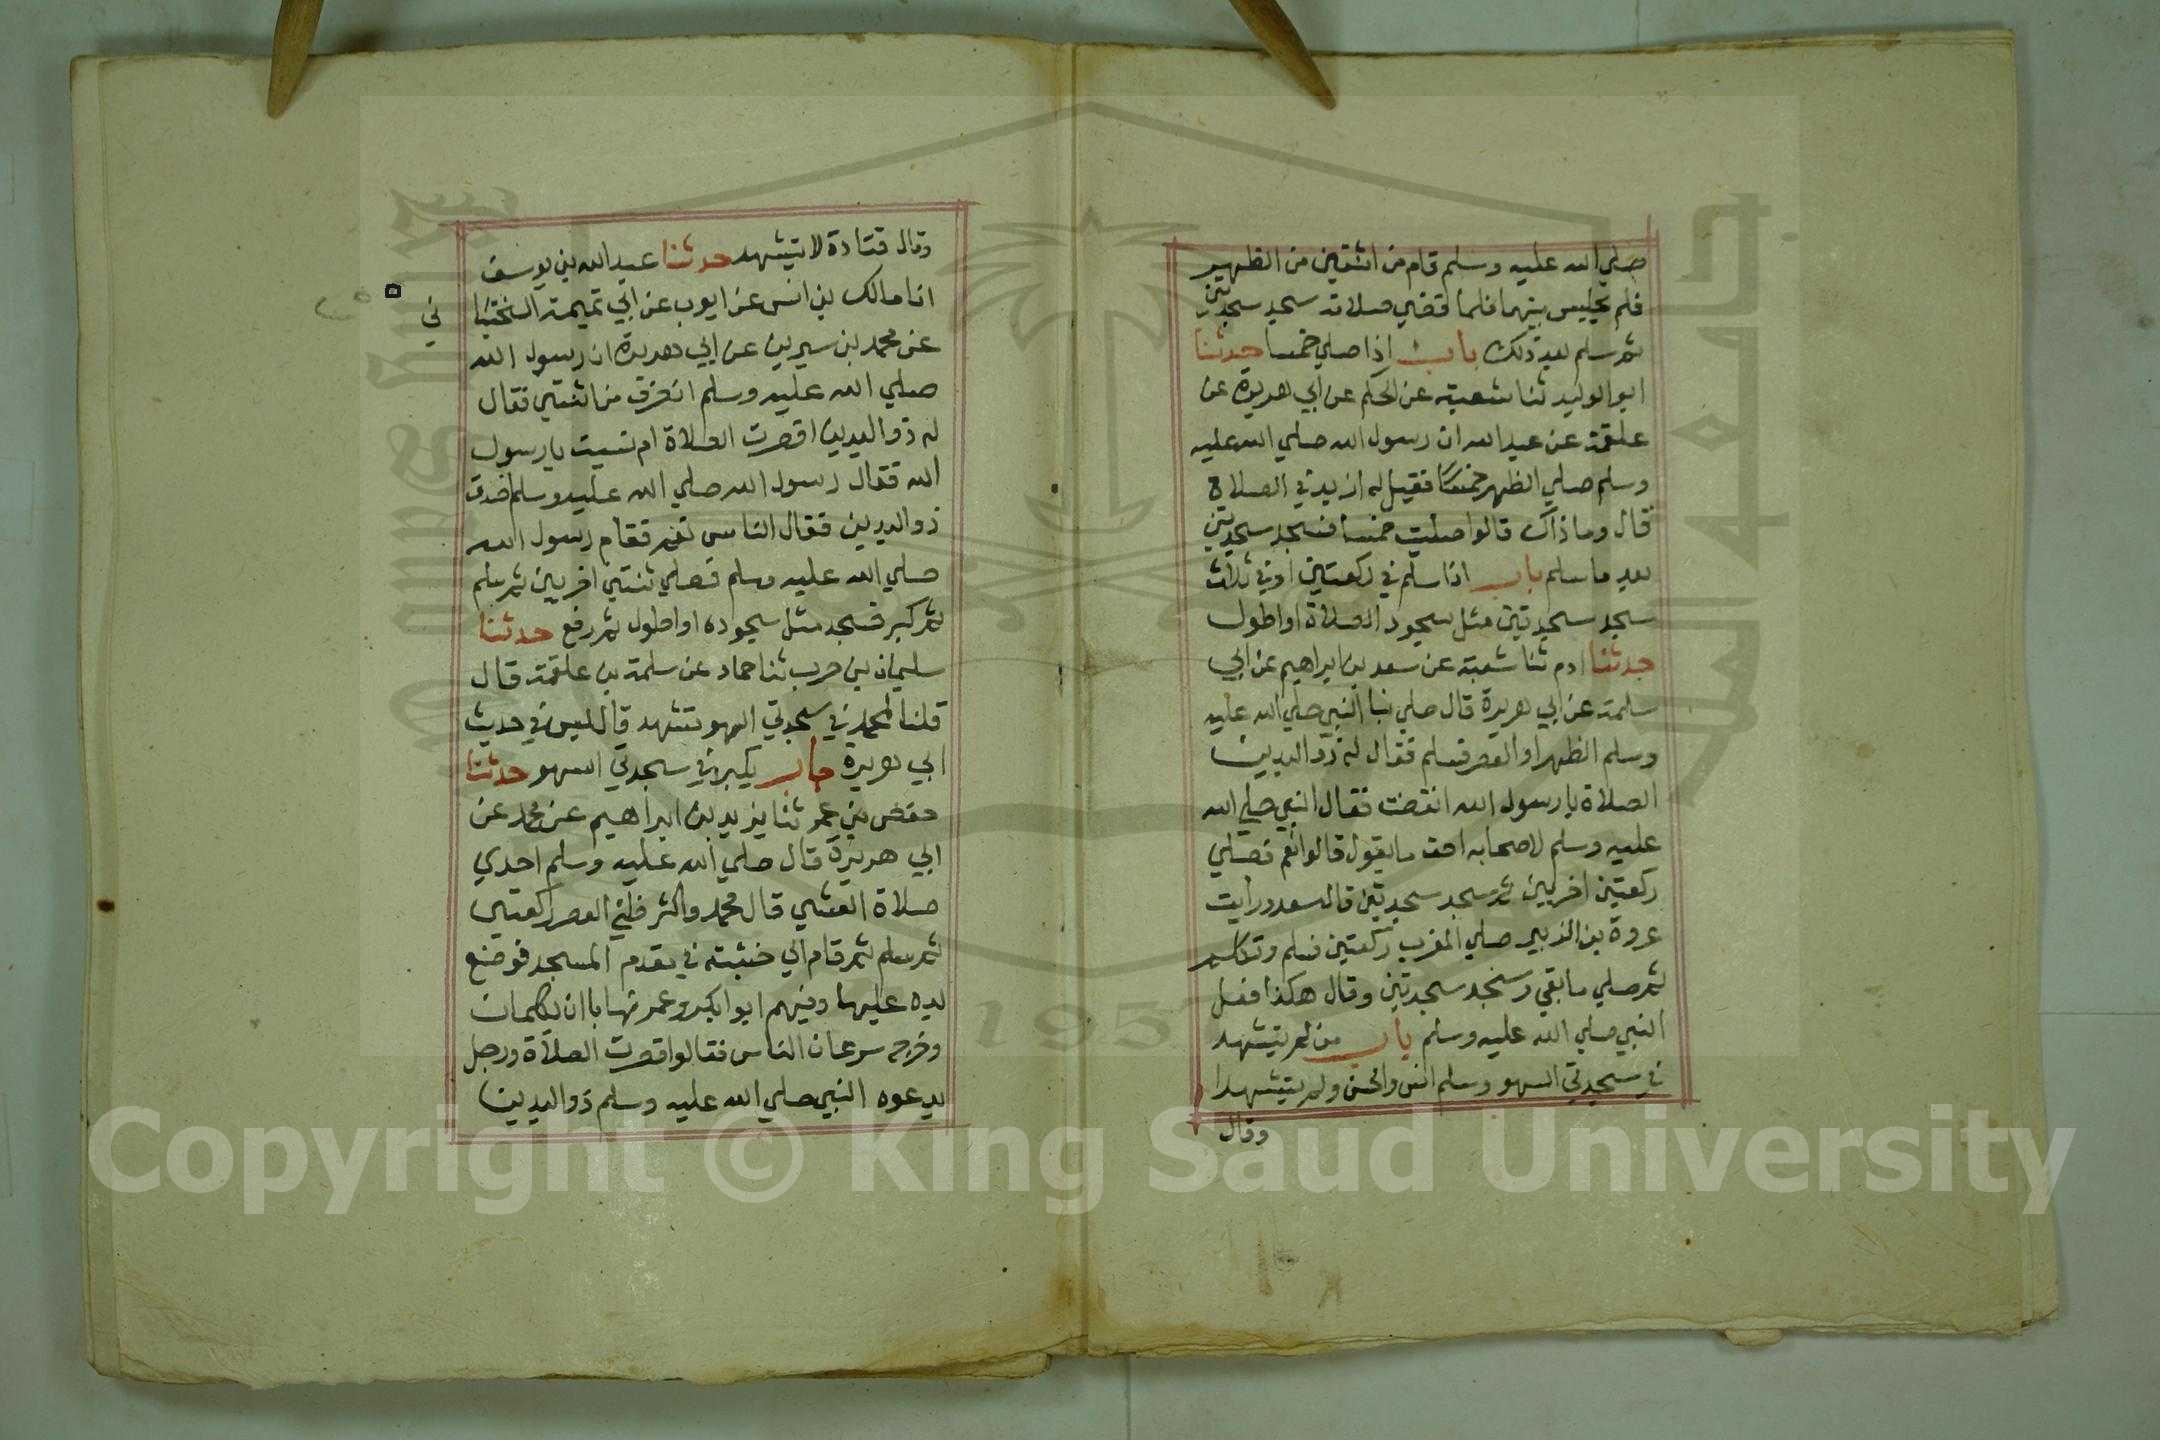 صلي الله عليه وسلم قام من اثنتين من الظهر
فلم يجلس بينهما فلما قضي صلاته سجد سجدتين
ثم سلم بعد ذلك باب اذا صلي خمسا حدثنا
ابو الوليد ثنا شعبه عن الحكم عن ابي هريرة عن
علقمة عن عبد الله ان رسول الله صلي الله عليه
وسلم صلي الظهر خمسا فقيل له ازيد في الصلاة
قال وما ذاك قالوا صليت خمسا فسجد سجدتين
بعد ما سلم باب اذا سلم في ركعتين او في ثلاث
سجد سجدتين مثل سجود الصلاة او اطول
حدثنا ادم ثنا شعبة عن سعد بن ابراهيم عن ابي
سلمة عن ابي هريرة قال صلي بنا النبي صلي الله عليه
وسلم الظهر او العصر فسلم فقال له ذو اليدين
الصلاة يا رسول الله انقصت فقال النبي صلي الله
عليه وسلم لاصحابه احق ما يقول قالوا نعم فصلي
ركعتين اخريين ثم سجد سجدتين قال سعد ورايت
عروة بن الزبير صلي المغرب ركعتين فسلم وتكلم
ثم صلي ما بقي وسجد سجدتين وقال هكذا فعل
النبي صلي الله عليه وسلم باب من لم يتشهد
في سجدتي السهو وسلم انس والحسن ولم يتشهدا
وقال
وقال قتادة لا يتشهد حدثنا عبد الله بن يوسف
انا مالك بن انس عن ايوب عن ابي تميمة السختيا
ني
عن محمد بن سيرين عن ابي هريرة ان رسول الله
صلي الله عليه وسلم انصرف من اثنتين فقال
له ذو اليدين اقصرت الصلاة ام نسيت يا رسول
الله فقال رسول الله صلي الله عليه وسلم اصدق
ذو اليدين فقال الناس نعم فقام رسول الله
صلي الله عليه وسلم فصلي ثنتي اخريين ثم سلم
ثم كبر فسجد مثل سجوده او اطول ثم رفع حدثنا
سليمان بن حرب ثنا حماد عن سلمة بن علقمة قال
قلنا لمحمد في سجدتي السهو تشهد قال ليس في حديث
ابي هريرة باب يكبر في سجدتي السهو حدثنا
حفص بن عمر ثنا يزيد بن ابراهيم عن محمد عن
ابي هريرة قال صلي الله عليه وسلم احدي
صلاة العشي قال محمد واكثر ظني العصر ركعتين
ثم سلم ثم قام الي خشبته في مقدم المسجد فوضع
يده عليها وفيهم ابو ابكر وعمر فهابا ان يكلمان
وخرج سرعان الناس فقالوا اقصرت الصلاة ورجل
يدعوه النبي صلي الله عليه وسلم ذو اليدين
1957
Copyright © King Saud University